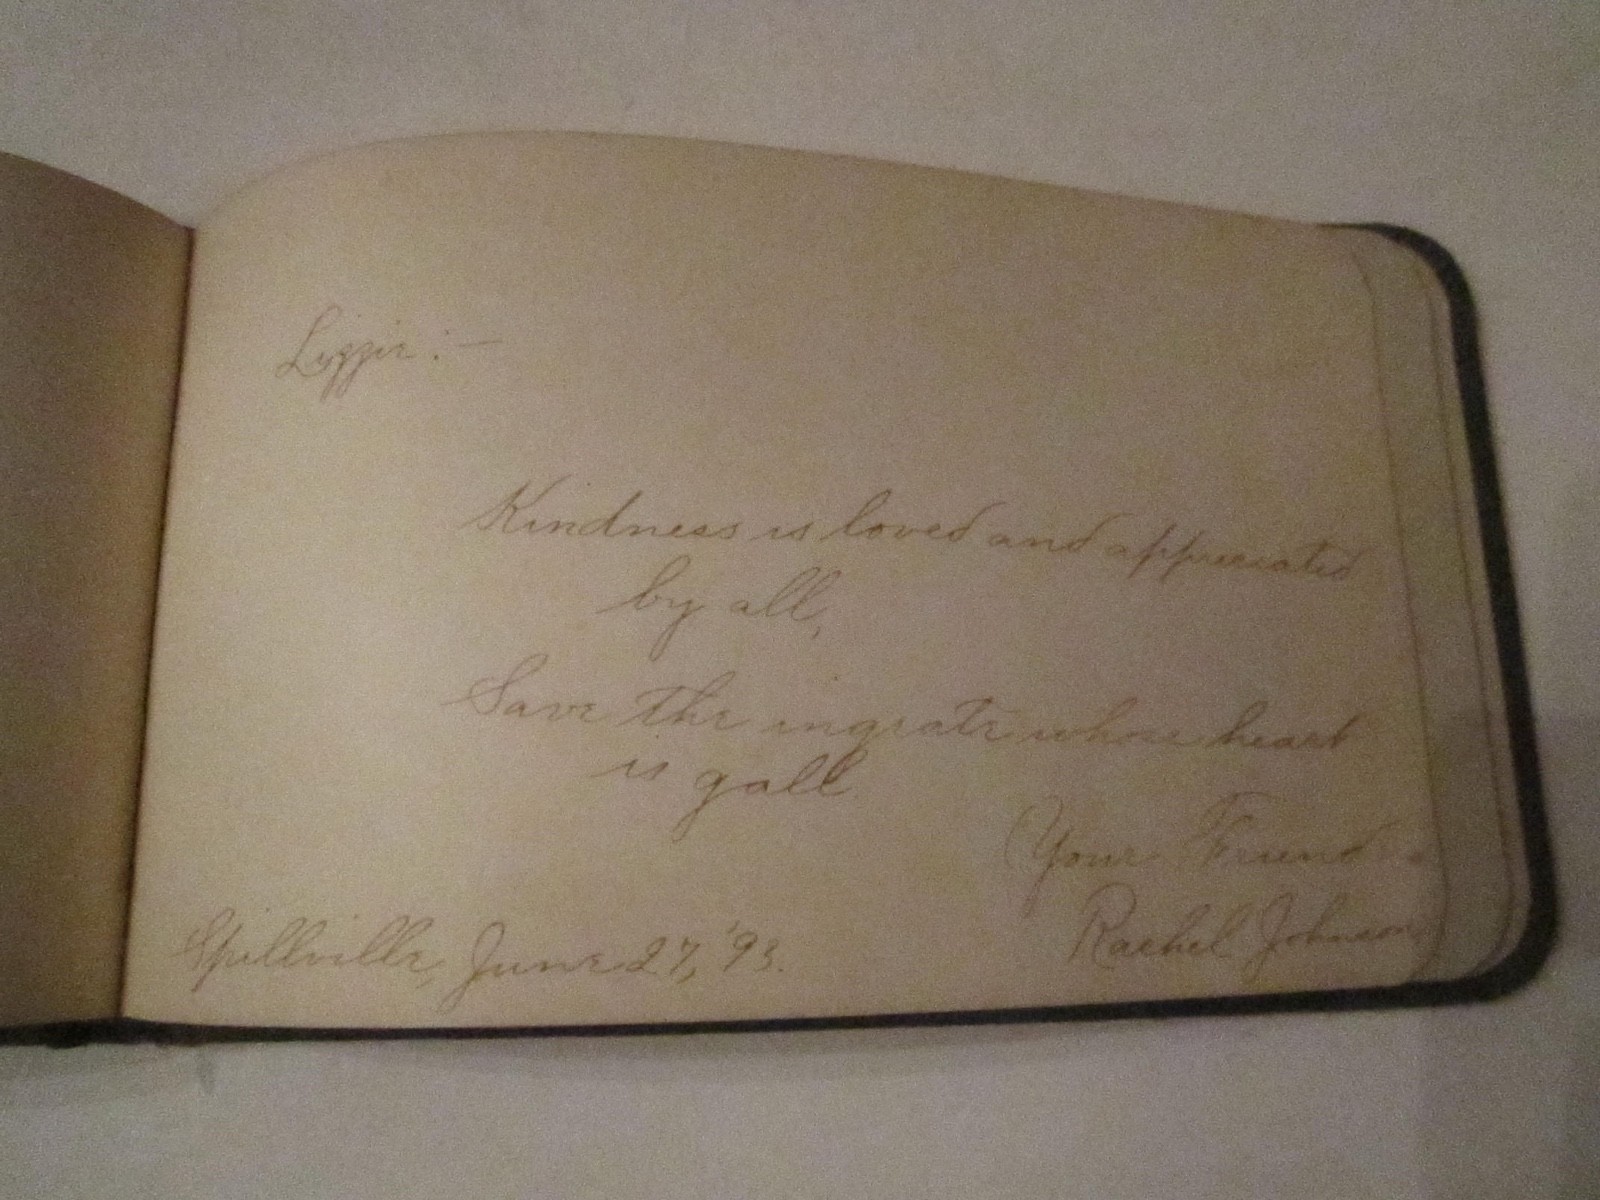 Lizzie:—
Kindness is loved and appreciated
by all,
Save the ingrate whose heart
is gall
Your Friend
Rachel Johnson
Spillville, June 27, '93.